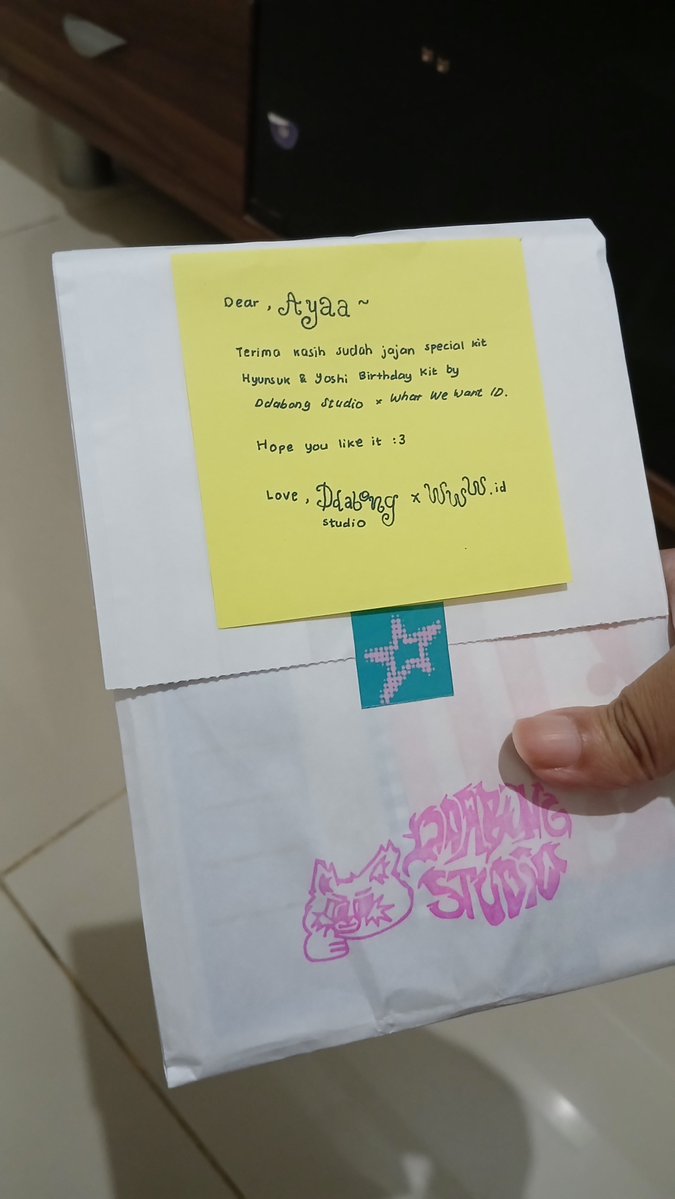 Dear, Ayaa ~
Terima kasih sudah jajan special kit
Hyunsuk & Yoshi Birthday Kit by
Ddabong Studio x What We Want ID.
Hope you like it :3
Love, Ddabong x WWW.id
studio
DDABONG
STUDIO